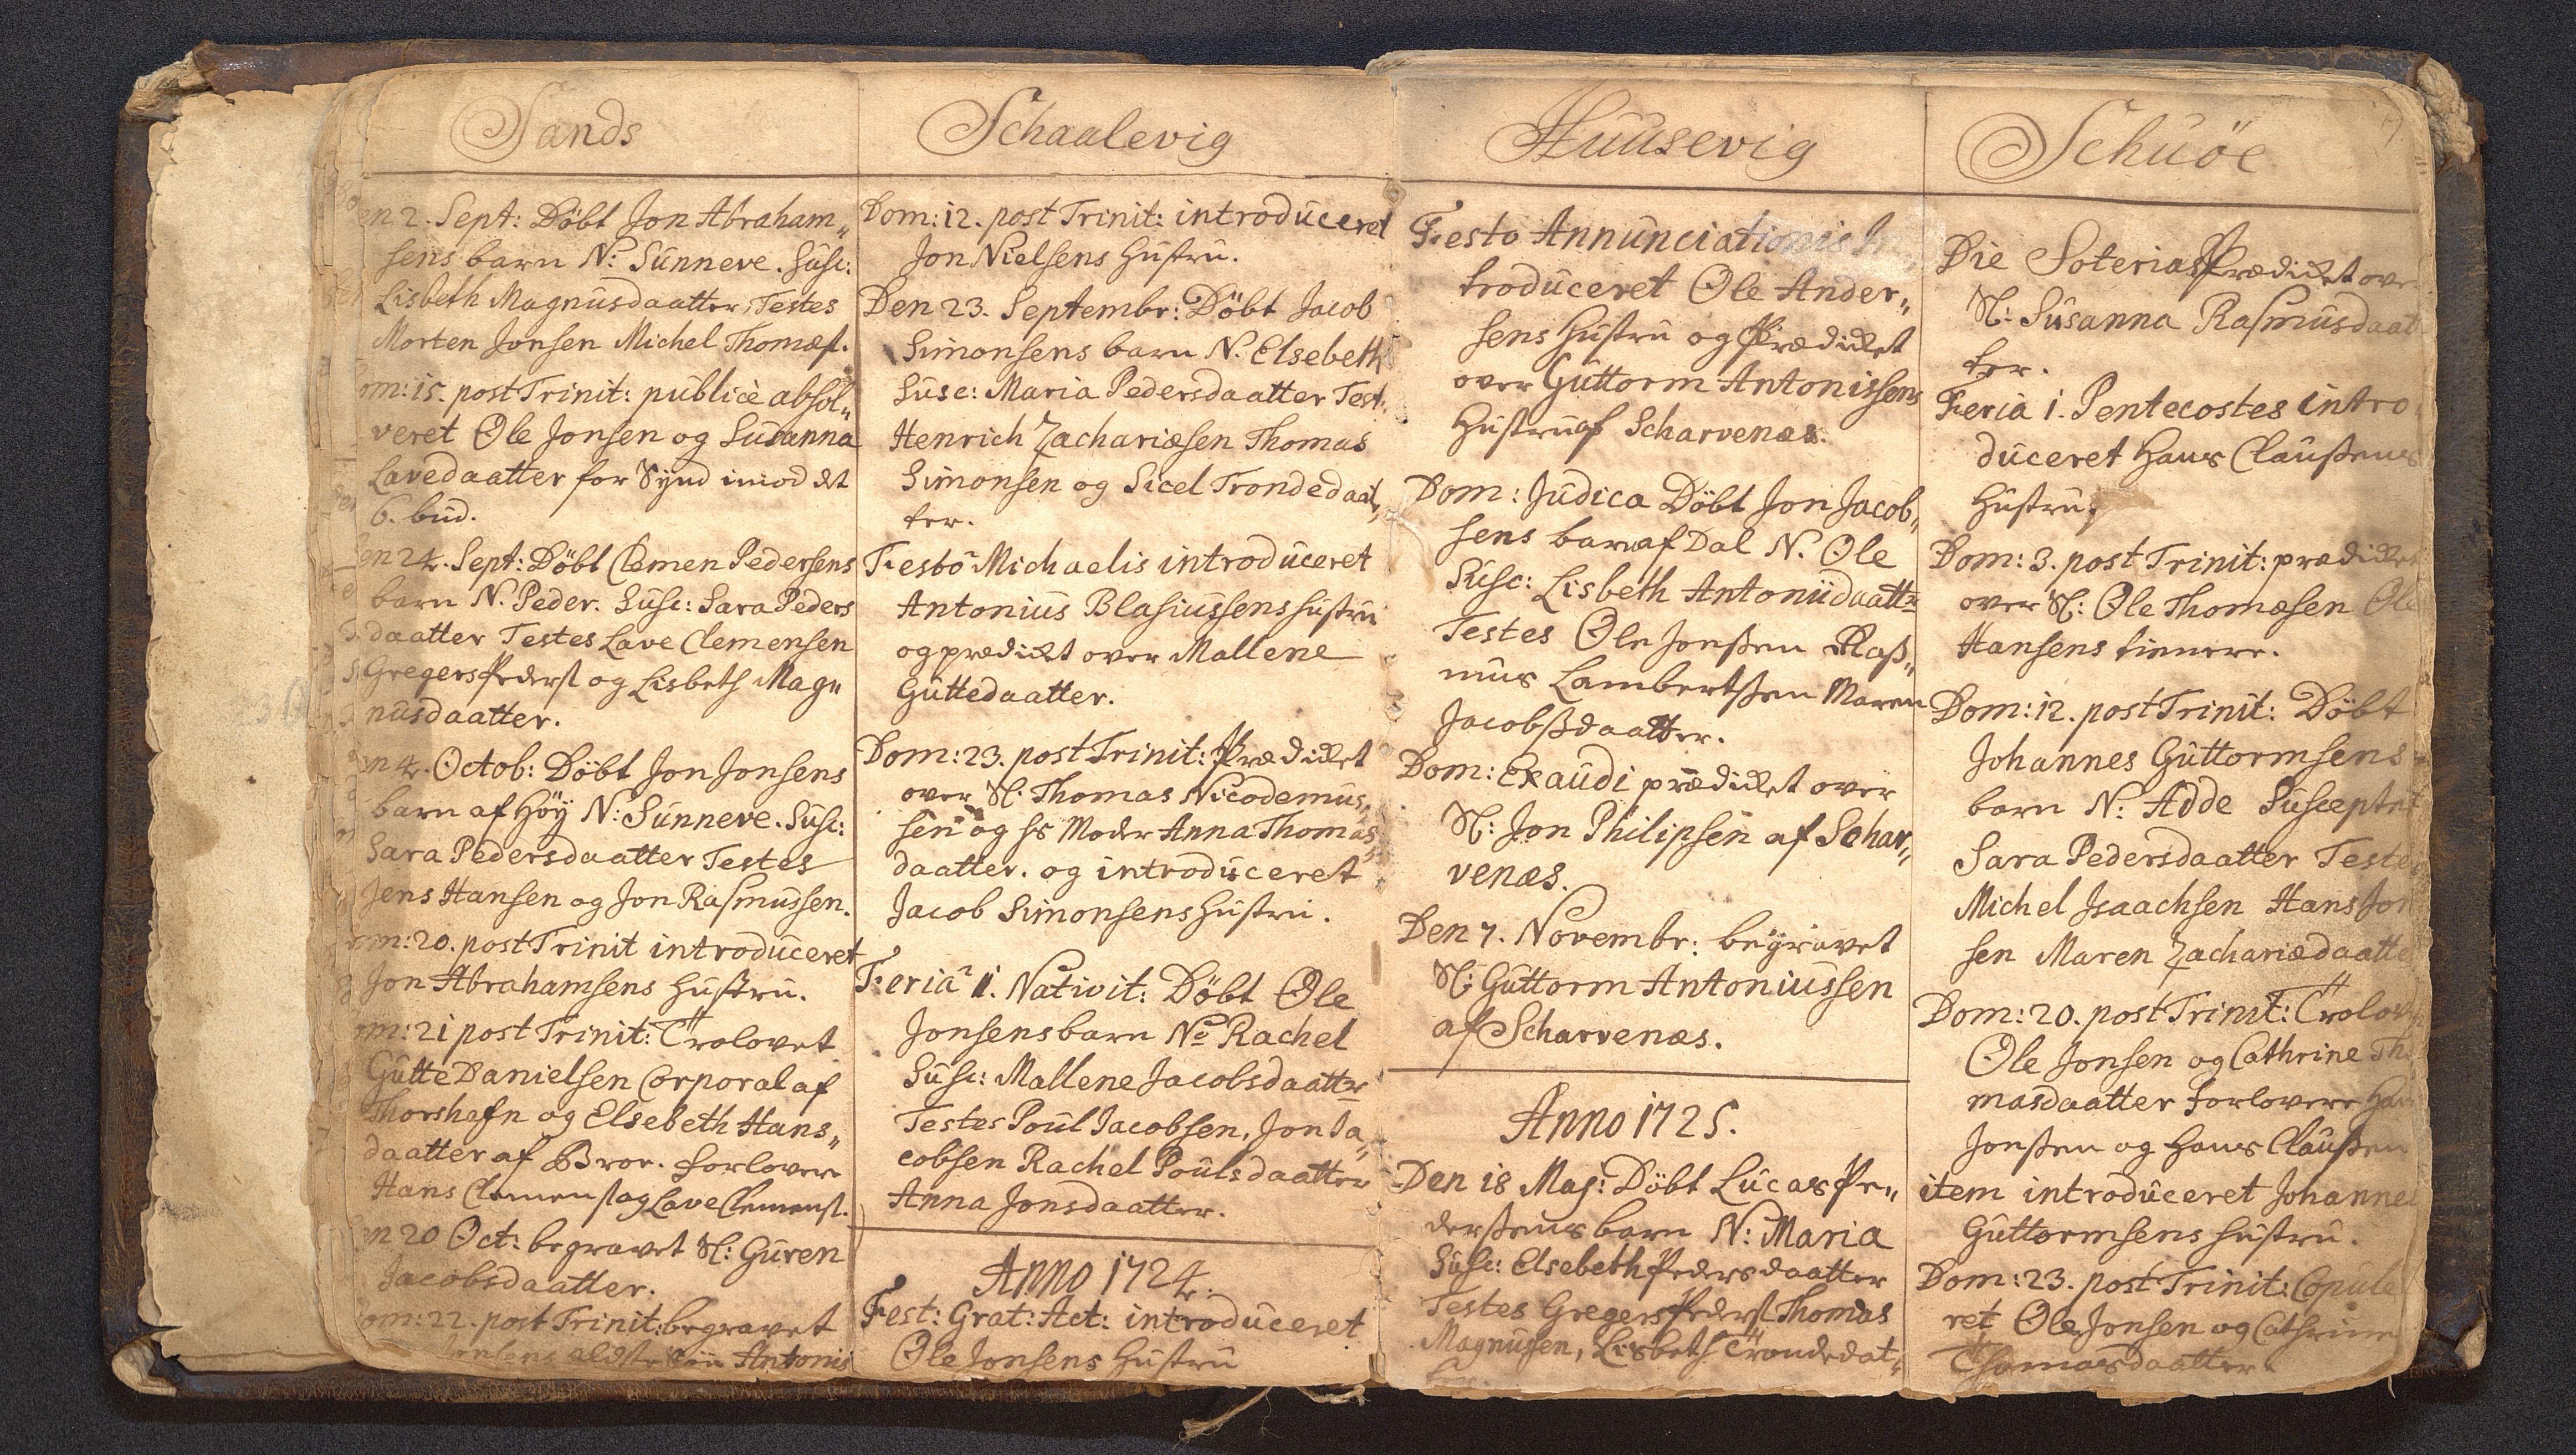 Sands
en 2. Sept: Döbt Jon Abraham„
sens barn N: Sunneve. Susc:
Lisbeth Magnusdaatter, Testes
Morten Jonsen Michel Thomæs.
om: 15. post Trinit: publicè absol„
veret Ole Jonsen og Susanna
Lavedaatter for Synd imod det
6. bud.
en 24. Sept: Döbt Clemen Pedersens
barn N. Peder. Susc: Sara Peders
daatter Testes Lave Clemensen
Gregers Peders. og Lisbeth Mag„
nusdaatter.
en 4. Octob: Döbt Jon Jonsens
barn af Höy N: Sunneve. Susc:
Sara Pedersdaatter Testes
Jens Hansen og Jon Rasmussen.
om: 20. post Trinit introduceret
Jon Abrahamsens Hustru.
om: 21 post Trinit: Trolovet
Gutte Danielsen Corporal af
Thorshafn og Elsebeth Hans„
daatter af Bror. Forlovere
Hans Clemens. og Lave Clemens.
en 20 Oct: begravet Sl: Guren
Jacobsdaatter.
om: 22. post Trinit: begravet
Jonsens aldste Antonis
Schaalevig
Dom: 12. post Trinit: introduceret
Jon Nielsens Hustru.
Den 23. Septembr: Döbt Jacob
Simonsens barn N. Elsebeth
Susc: Maria Pedersdaatter Test.
Henrich Zachariæsen Thomas
Simonsen og Sicel Trondedaat„
ter.
Festo Michaelis introduceret
Antonius Blasiussens Hustru
og prædicket over Mallene
Guttedaatter.
Dom: 23. post Trinit: Prædicket
over Sl: Thomas Nicodemus„
sen og hs Moder Anna Thomas„
daatter. og introduceret
Jacob Simonsens Hustru.
Feria 1. Nativit: Döbt Ole
Jonsens barn No Rachel
Susc: Mallene Jacobsdaattr
Testes Poul Jacobsen, Jon Ja„
cobsen Rachel Poulsdaatter
Anna Jonsdaatter.
Anno 1724.
Fest: Grat: Act: introduceret
Ole Jonsens Hustru
Huusevig
Festo Annunciationis In
troduceret Ole Ander„
sens Hustru og Prædicket
over Guttorm Antonissens
Hustru af Scharvenæs.
Dom: Judica Döbt Jon Jacob„
sens barn af Dal N. Ole
Susc: Lisbeth Antoniidaattr
Testes Ole Jonssen Rass„
mus Lambertssen Maren
Jacobssdaatter.
Dom: Exaudi prædicket over
Sl: Jon Philipsen af Schar„
venæs.
Den 7. Novembr: begravet
Sl: Guttorm Antoniussen
af Scharvenæs.
Anno 1725.
Den 18 Maj: Döbt Lucas Pe„
derssens barn N: Maria
Susc: Elsebeth Pedersdaatter
Testes Gregers Peders. Thomas
Magnussen, Lisbeth Trondedat„
ter.
Schuöe
Die Soterias Prædicket over
Sl: Susanna Rasmusdaat
ter.
Feria 1. Pentecostes intro
duceret Hans Claussens
Hustru.
Dom: 3. post Trinit: prædicket
over Sl: Ole Thomæsen Ole
Hansens tienere.
Dom: 12. post Trinit: Döbt
Johannes Guttormsens
barn N: Adde Susceptrix
Sara Pedersdaatter Testes
Michel Isaachsen Hans Jon
sen Maren Zachariædaatte
Dom: 20. post Trinit: Trolov
Ole Jonsen og Cathrine Tho
masdaatter Forlovere Han
Jonssen og Hans Claussen
item introduceret Johannes
Guttormsens Hustru.
Dom: 23. post Trinit: Copule
ret Ole Jonsen og Cathrine
Thomasdaatter.